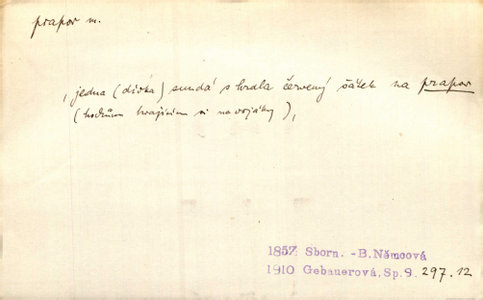 prapor m.
, jedna (dívka) sundá s krala červený šátek na prapor
(hochům hrajícím si na vojáky),
1857 Sborn. -B.Němcová
1910 Gebauerová, Sp.9. 297.12